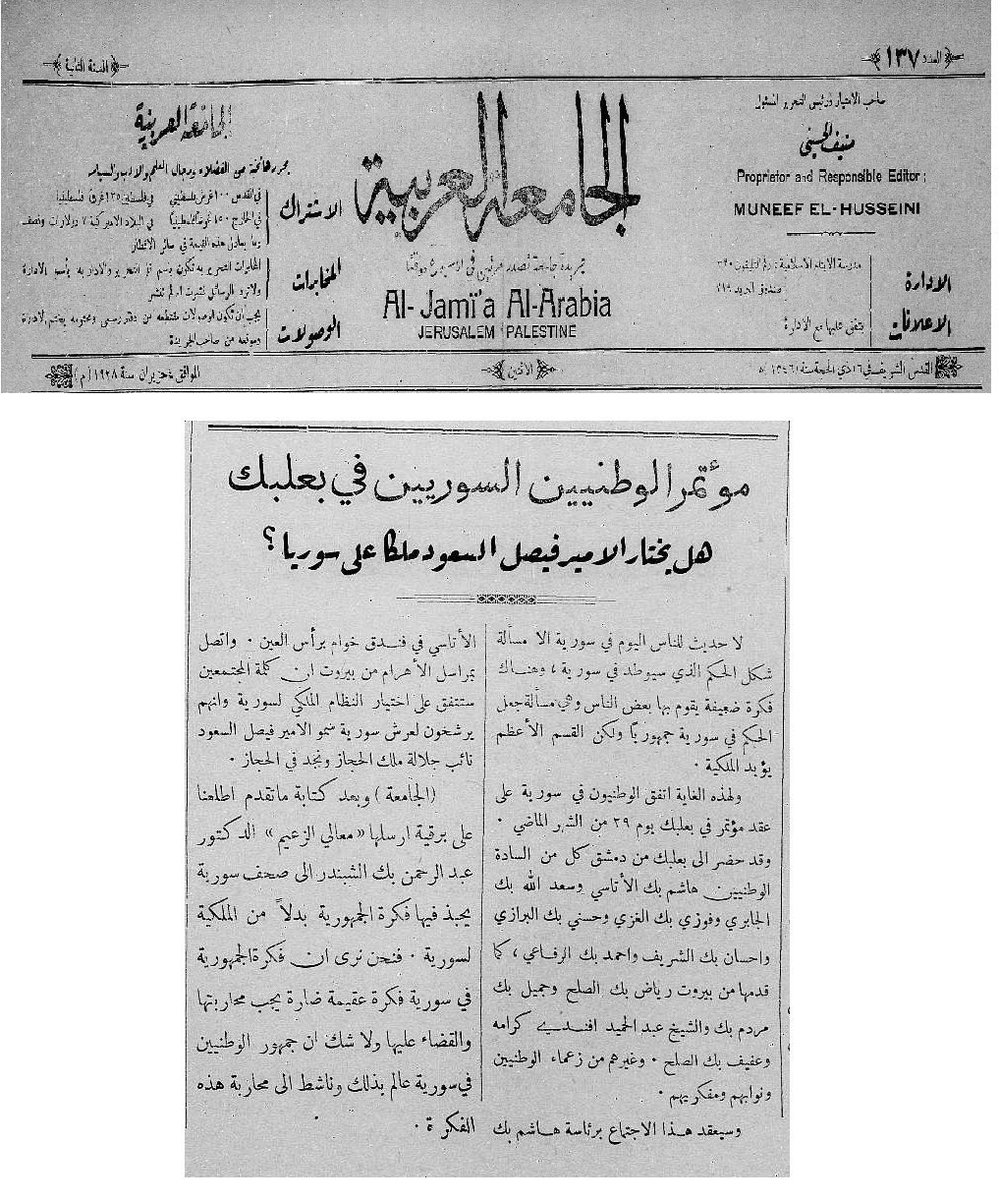 العدد ١٣٧
السنة الثانية
صاحب الامتياز ورئيس التحرير المسؤول
منيف الحسيني
Proprietor and Responsible Editor:
MUNEEF EL-HUSSEINI
الادارة
مدرسة الايتام الاسلامية: رقم التليفون ٣٩٠
صندوق البريد
الاعلانات
يتفق عليها مع الادارة
الجامعة العربية
جريدة جامعة تصدر مرتين في الاسبوع موقتاً
Al-Jami'a Al-Arabia
JERUSALEM PALESTINE
الجامعة العربية
يحررها نخبة من الفضلاء ورجال العلم والادب والسياسة
الاشتراك
في القدس ١٠٠ غرش فلسطيني
في الخارج ١٥٠ غرشاً فلسطينياً في البلاد الاميركية ٧ دولارات ونصف
وما يعادل هذه القيمة في سائر الاقطار
المخابرات
المخابرات التحريرية تكون باسم قلم التحرير والادارية باسم الادارة
ولا ترد الرسائل نشرت ام لم تنشر
الوصولات
يجب ان تكون الوصولات مقتطعة من دفتر رسمي ومختومة بختم الادارة
وموقعة من صاحب الجريدة
القدس الشريف في ١٦ ذي الحجة سنة ١٣٤٦ هـ
الاثنين
الموافق ٤ حزيران سنة ١٩٢٨ (م)
مؤتمر الوطنيين السوريين في بعلبك
هل يختار الامير فيصل السعود ملكا على سوريا؟
لا حديث للناس اليوم في سورية الا مسألة
شكل الحكم الذي سيوطد في سورية، وهناك
فكرة ضعيفة يقوم بها بعض الناس وهي مسألة جعل
الحكم في سورية جمهورياً ولكن القسم الأعظم
يؤيد الملكية.
ولهذه الغاية اتفق الوطنيون في سورية على
عقد مؤتمر في بعلبك يوم ٢٩ من الشهر الماضي.
وقد حضر الى بعلبك من دمشق كل من السادة
الوطنيين هاشم بك الأتاسي وسعد الله بك
الجابري وفوزي بك الغزي وحسني بك البرازي
واحسان بك الشريف واحمد بك الرفاعي، كما
قدمها من بيروت رياض بك الصلح وجميل بك
مردم بك والشيخ عبد الحميد افندي كرامه
وعفيف بك الصلح. وغيرهم من زعماء الوطنيين
ونوابهم ومفكريهم.
وسيعقد هذا الاجتماع برئاسة هاشم بك
الأتاسي في فندق خوام برأس العين. واتصل
بمراسل الأهرام من بيروت ان كلمة المجتمعين
ستتفق على اختيار النظام الملكي لسورية وانهم
يرشحون لعرش سورية سمو الامير فيصل السعود
نائب جلالة ملك الحجاز ونجد في الحجاز.
(الجامعة) وبعد كتابة ما تقدم اطلعنا
على برقية ارسلها «معالي الزعيم» الدكتور
عبد الرحمن بك الشهبندر الى صحف سورية
يحبذ فيها فكرة الجمهورية بدلاً من الملكية
لسورية. فنحن نرى ان فكرة الجمهورية
في سورية فكرة عقيمة ضارة يجب محاربتها
والقضاء عليها ولا شك ان جمهور الوطنيين
في سورية عالم بذلك وناشط الى محاربة هذه
الفكرة.